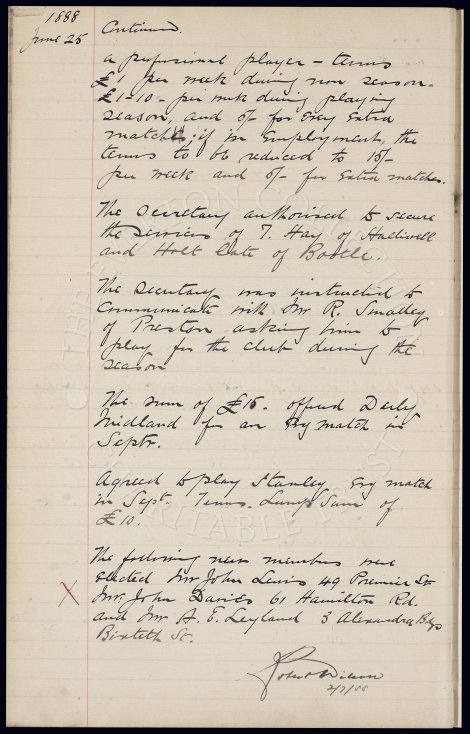 1888
June 25 Continued.
a professional player - terms
£1 per week during non season.
£1-10- per week during playing
season, and 5/- for Evey Extra
match; if in Employment, the
terms to be reduced to 15/-
per week and 5/- for Extra matches.
The Secretary authorised to secure
the services of J. Hay of Halliwell
and Holt late of Bootle.
The Secretary was instructed to
Communicate with Mr R. Smalley
of Preston asking him to
play for the club during the
season
The sum of £15. offered Derby
Midland for an Evg match in
Septr.
Agreed to play Stanley Evg match
in Sept. Terms. Lump Sum of
£10.
The following new members were
elected Mr John Lewis 49 Premier St
X Mr. John Davies 61 Hamilton Rd.
and Mr A. E. Leyland 3 Alexandra Bdgs
St.
Robert Wilson
2/7/88
THE EVERTON COLLECTION
CHARITABLE TRUST